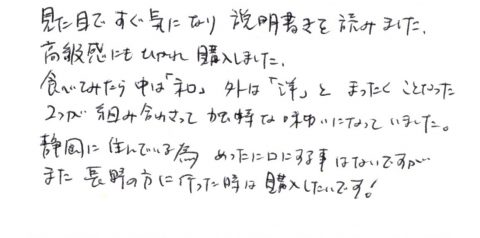 見た目ですぐ気になり 説明書きを 読みました.
高級感にもひかれ 購入しました.
食べてみたら 中は「和」 外は「洋」と まったく ことなった
2つが 組み合わさって 独特な 味わいになって いました。
静岡に 住んでいる為 めったに口にする事はないですが
また 長野の方に行った時は 購入したいです!